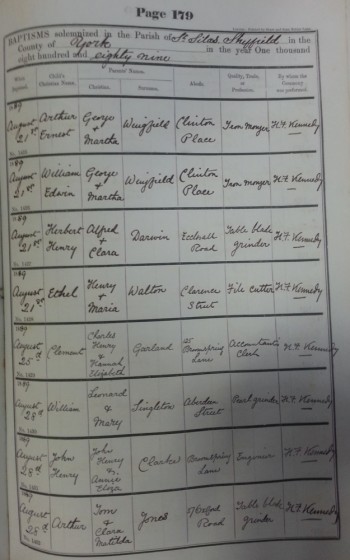 Page 179
BAPTISMS solemnized in the Parish of St Silas Sheffield in the
County of York in the year One thousand
eight hundred and eighty nine
When Baptized. Child's Christian Name. Parents' Names. Christian. Surname. Abode. Quality, Trade, or Profession. By whom the Ceremony was performed.
1889 August 21st Arthur Ernest George & Martha Wingfield Clinton Place Iron monger H.F. Kennedy
1889 August 21st William Edwin George & Martha Wingfield Clinton Place Iron monger H.F. Kennedy
1889 August 21st Herbert Henry Alfred & Clara Darwin Ecclesall Road Table blade grinder H.F. Kennedy
No. 1427
1889 August 21st Ethel Henry & Maria Walton Clarence Street File cutter H.F. Kennedy
No. 1428
August 25th Clement Charles Henry & Hannah Elizabeth Garland Broomspring Lane Accountants Clerk H.F. Kennedy
No. 1429
1889 August 28th William Leonard & Mary Singleton Aberdeen Street H.F. Kennedy
August 28th John Henry John Henry & Annie Eliza Clarke Broomspring Lane Engineer H.F. Kennedy
August 28th Arthur Tom & Clara Matilda Jones Road Table blade grinder H.F. Kennedy